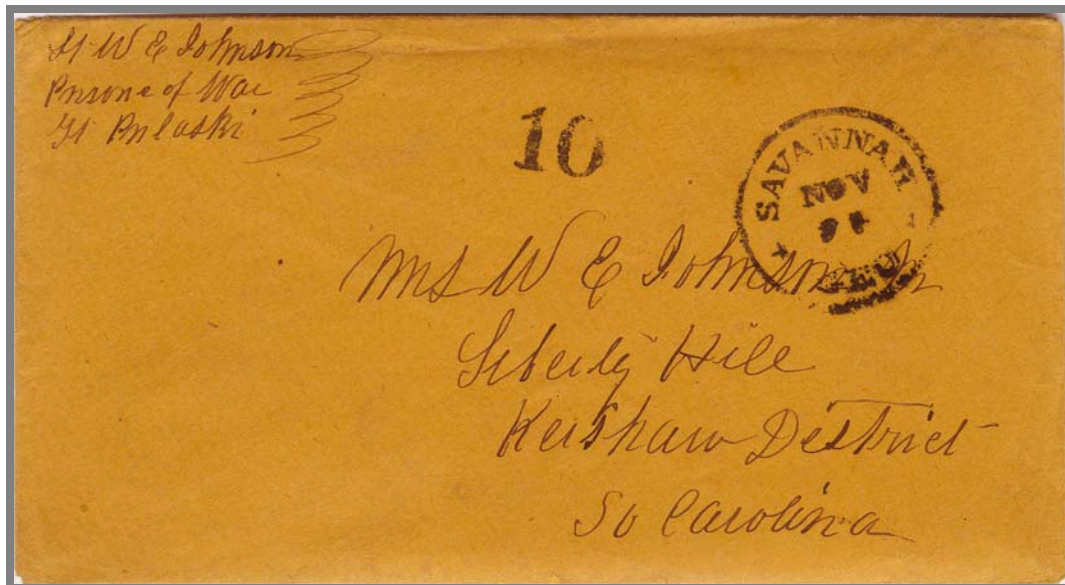 Lt W E Johnson
Prisone of War
Ft Pulaski
10
SAVANNAH
NOV
GEO
Mrs W E Johnson Jr
Liberty Hill
Kershaw District
So Carolina